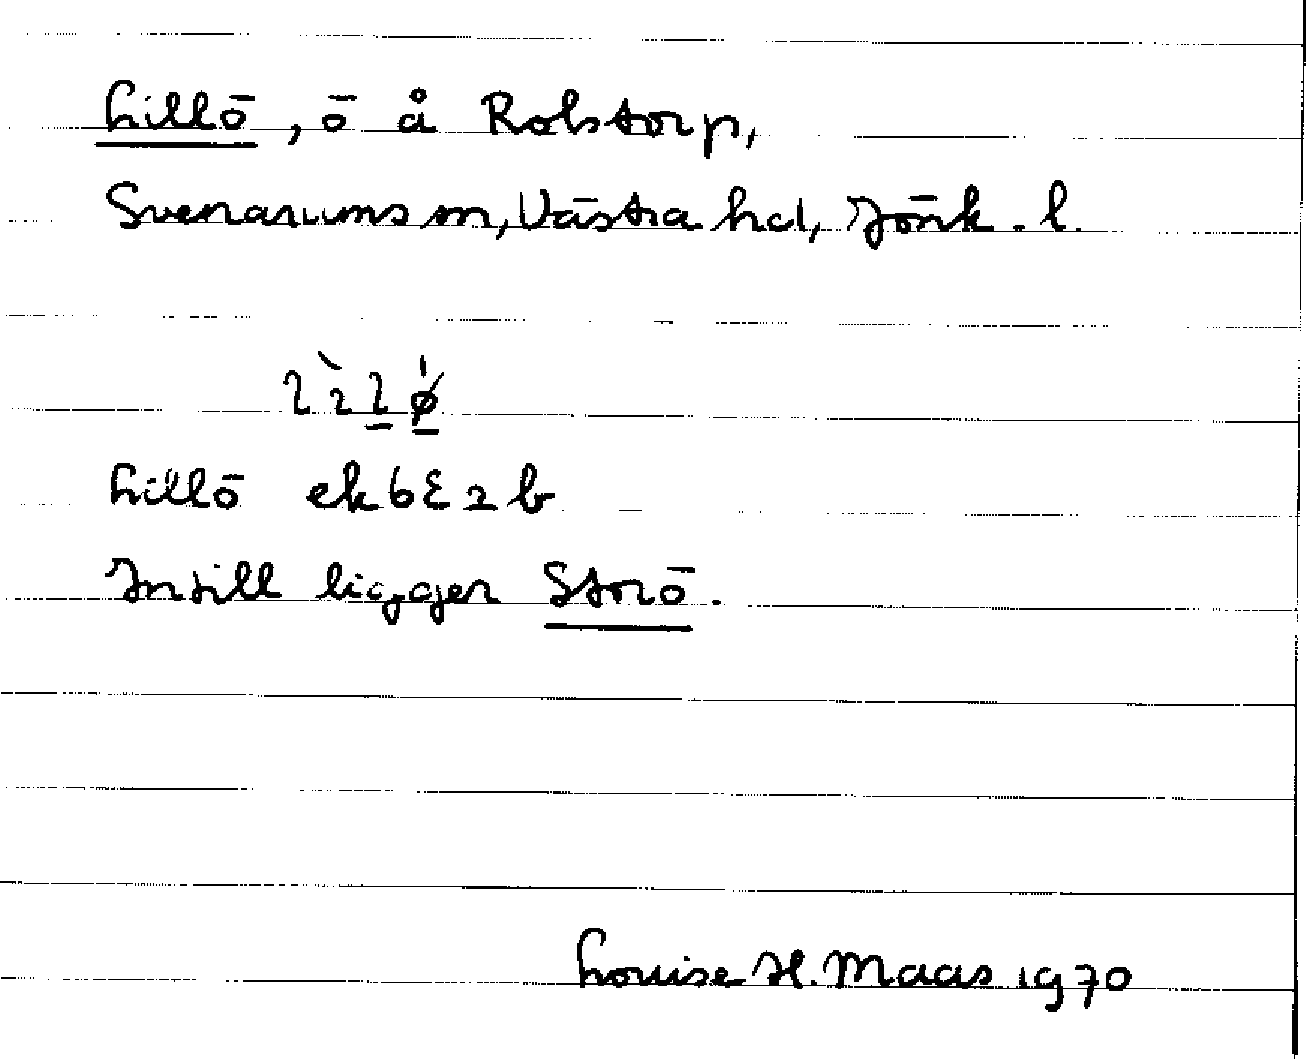 Lillö, ö å Rolstorp,
Svenarums sn, Västra hd, Jönk. l.
Lillö ek 6E2b
Intill ligger Storö.
Louise H. Maas 1970